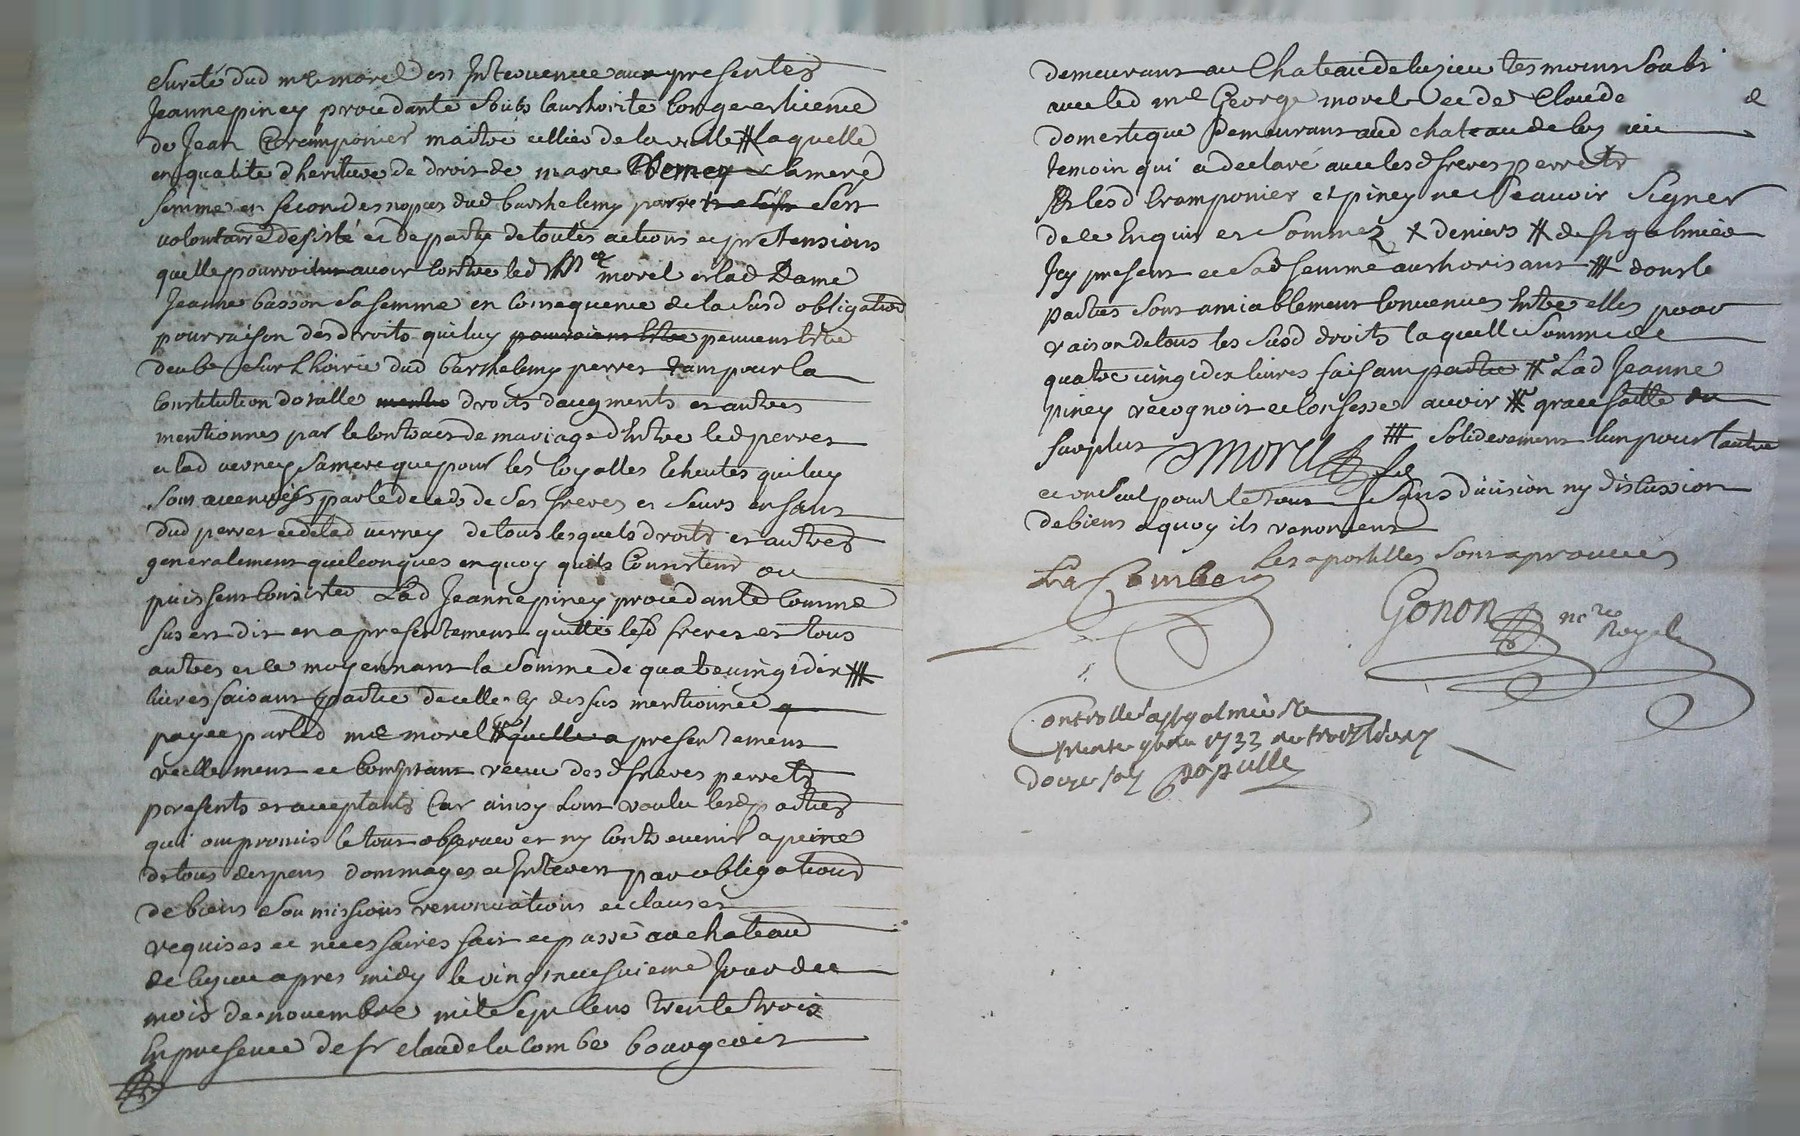 sureté dud me morel est Intervenue aux presentes
Jeanne piney procedante soubs lauthorité congé et licence
de Jean Cramponier maitre cellier de la ville # laquelle
en qualité d'heritiere de droit de marie Verney sa mere
femme en secondes nopces dud barthelemy perret sest
volontaire desisté et departy de toutes actions et pretensions
quelle pourroit avoir contre led Me morel et lad Dame
Jeanne basson sa femme en consequence de la susd obligation
pour raison des droits qui luy pouroient estre peuvent estre
deubs sur Lhoirie dud barthelemy perret tam pour la
constitution dotalle droits daugments et autres
mentionnes par le contract de mariage d'Entre led perret
et lad verney sa mere que pour les loyalles echeutes qui luy
sont avenues par le deceds de ses freres et seurs enfans
dud perret et de lad verney de tous lesquels droits et autres
generalement quelconques en quoy quils consistent ou
puissent consister Lad Jeanne piney procedante comme
sus est dit en a presentement quitté lesd freres et tous
autres et ce moyennant la somme de quatre vingt dix #
livres faisant partie de celle cy dessus mentionnée
payée par led me morel # quelle a presentement
reellement et comptant receu desd freres perrets
presents et acceptants Car ainsy Lont voulu lesd parties
qui ont promis le tout observer et ny contrevenir a peine
de tous despens dommages et Interets par obligations
de biens soumissions renonciations et clauses
requises et necessaires fait et passé au chateau
de luzieu apres midy le vingt neufvieme Jour de
mois de novembre mil sept cens trente trois
En presence de sr claude lacombe bourgeois
demeurant au Chateau de luzieu tesmoins Soubs
avec led me George morel et de Claude &
domestique Demeurant aud chateau de luzieu
temoin qui a declaré avec lesd freres perrets
# lesd Cramponier et piney ne Sçavoir Signer
de ce Enquis et Sommez x deniers # de st galmier
Icy present et sad femme authorisant # dont le
parties sont amiablement convenues Entre elles pour
raison de tous les susd droits laquelle somme de
quatre vingt dix livres faisant partie # Lad Jeanne
piney recognoit et confesse avoir # grace faitte du
surplus Morel # soliderement lun pour lautre
et un seul pour le tout sans division ny discussion
de biens a quoy ils renoncent
Les apostilles sont aprouvées
La Combe
Gonon nre
Royal
Controllé a st galmier le
trente 9bre 1733 reçu trois livres
douze sols Populle